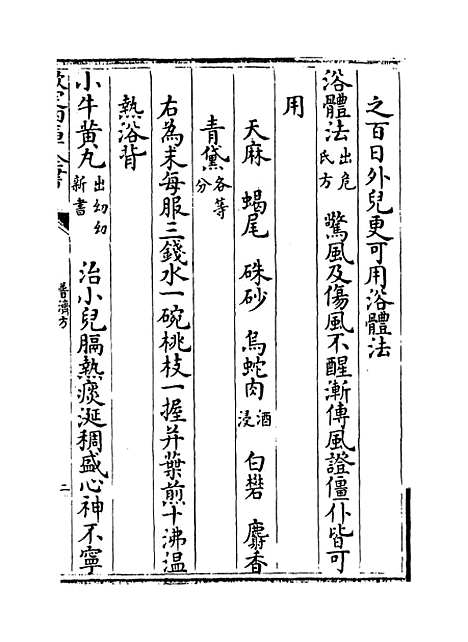 之百日外兒更可用浴體法
浴體法出危氏方 驚風及傷風不醒漸傳風證僵仆皆可
用
天麻 蝎尾 硃砂 烏蛇肉酒浸 白礬 麝香
青黛各等分
右為末每服三錢水一碗桃枝一握并葉煎十沸溫
熱浴背
小牛黄丸出幼幼新書 治小兒膈熱痰涎稠盛心神不寧
普濟方
二